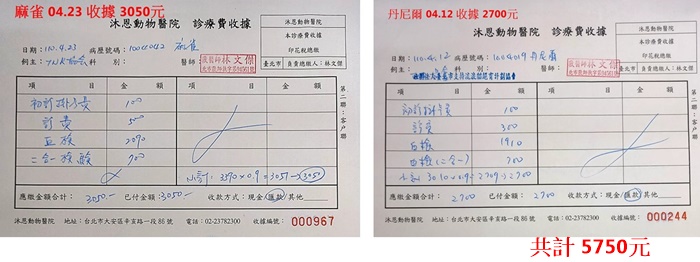 麻雀 04.23 收據 3050元
沐恩動物醫院 診療費收據
沐恩動物醫院
本診療費收據
印花稅總繳
臺北市 負責總繳人:林文傑
日期:110.4.23 病歷號碼:1004042 麻雀
例主: 科別:
獸醫師林文傑
項 目 金 額 項 目 金 額
初診掛號費 100
診費 500
血檢 2090
二合一檢驗 700
小計:3390×0.9=3051→3050
第二聯:客戶聯
應繳金額合計:3050.- 已付金額:3050.- 收款方式:現金/匯款/其他
沐恩動物醫院 地址:台北市大安區辛亥路一段86號 電話:02-23782300 收據編號:000967
丹尼爾 04.12 收據 2700元
沐恩動物醫院 診療費收據
沐恩動物醫院
本診療費收據
印花稅總繳
臺北市 負責總繳人:林文傑
日期:110.4.12 病歷號碼:1004019 丹尼爾
例主: 科別:
獸醫師林文傑
項 目 金 額 項 目 金 額
初診掛號費 100
診費 300
血檢 1910
血檢(二合一) 700
小計:3010×0.9=2709→2700
第二聯:客戶聯
應繳金額合計:2700 已付金額:2700 收款方式:現金/匯款/其他
沐恩動物醫院 地址:台北市大安區辛亥路一段86號 電話:02-23782300 收據編號:000244
共計 5750元